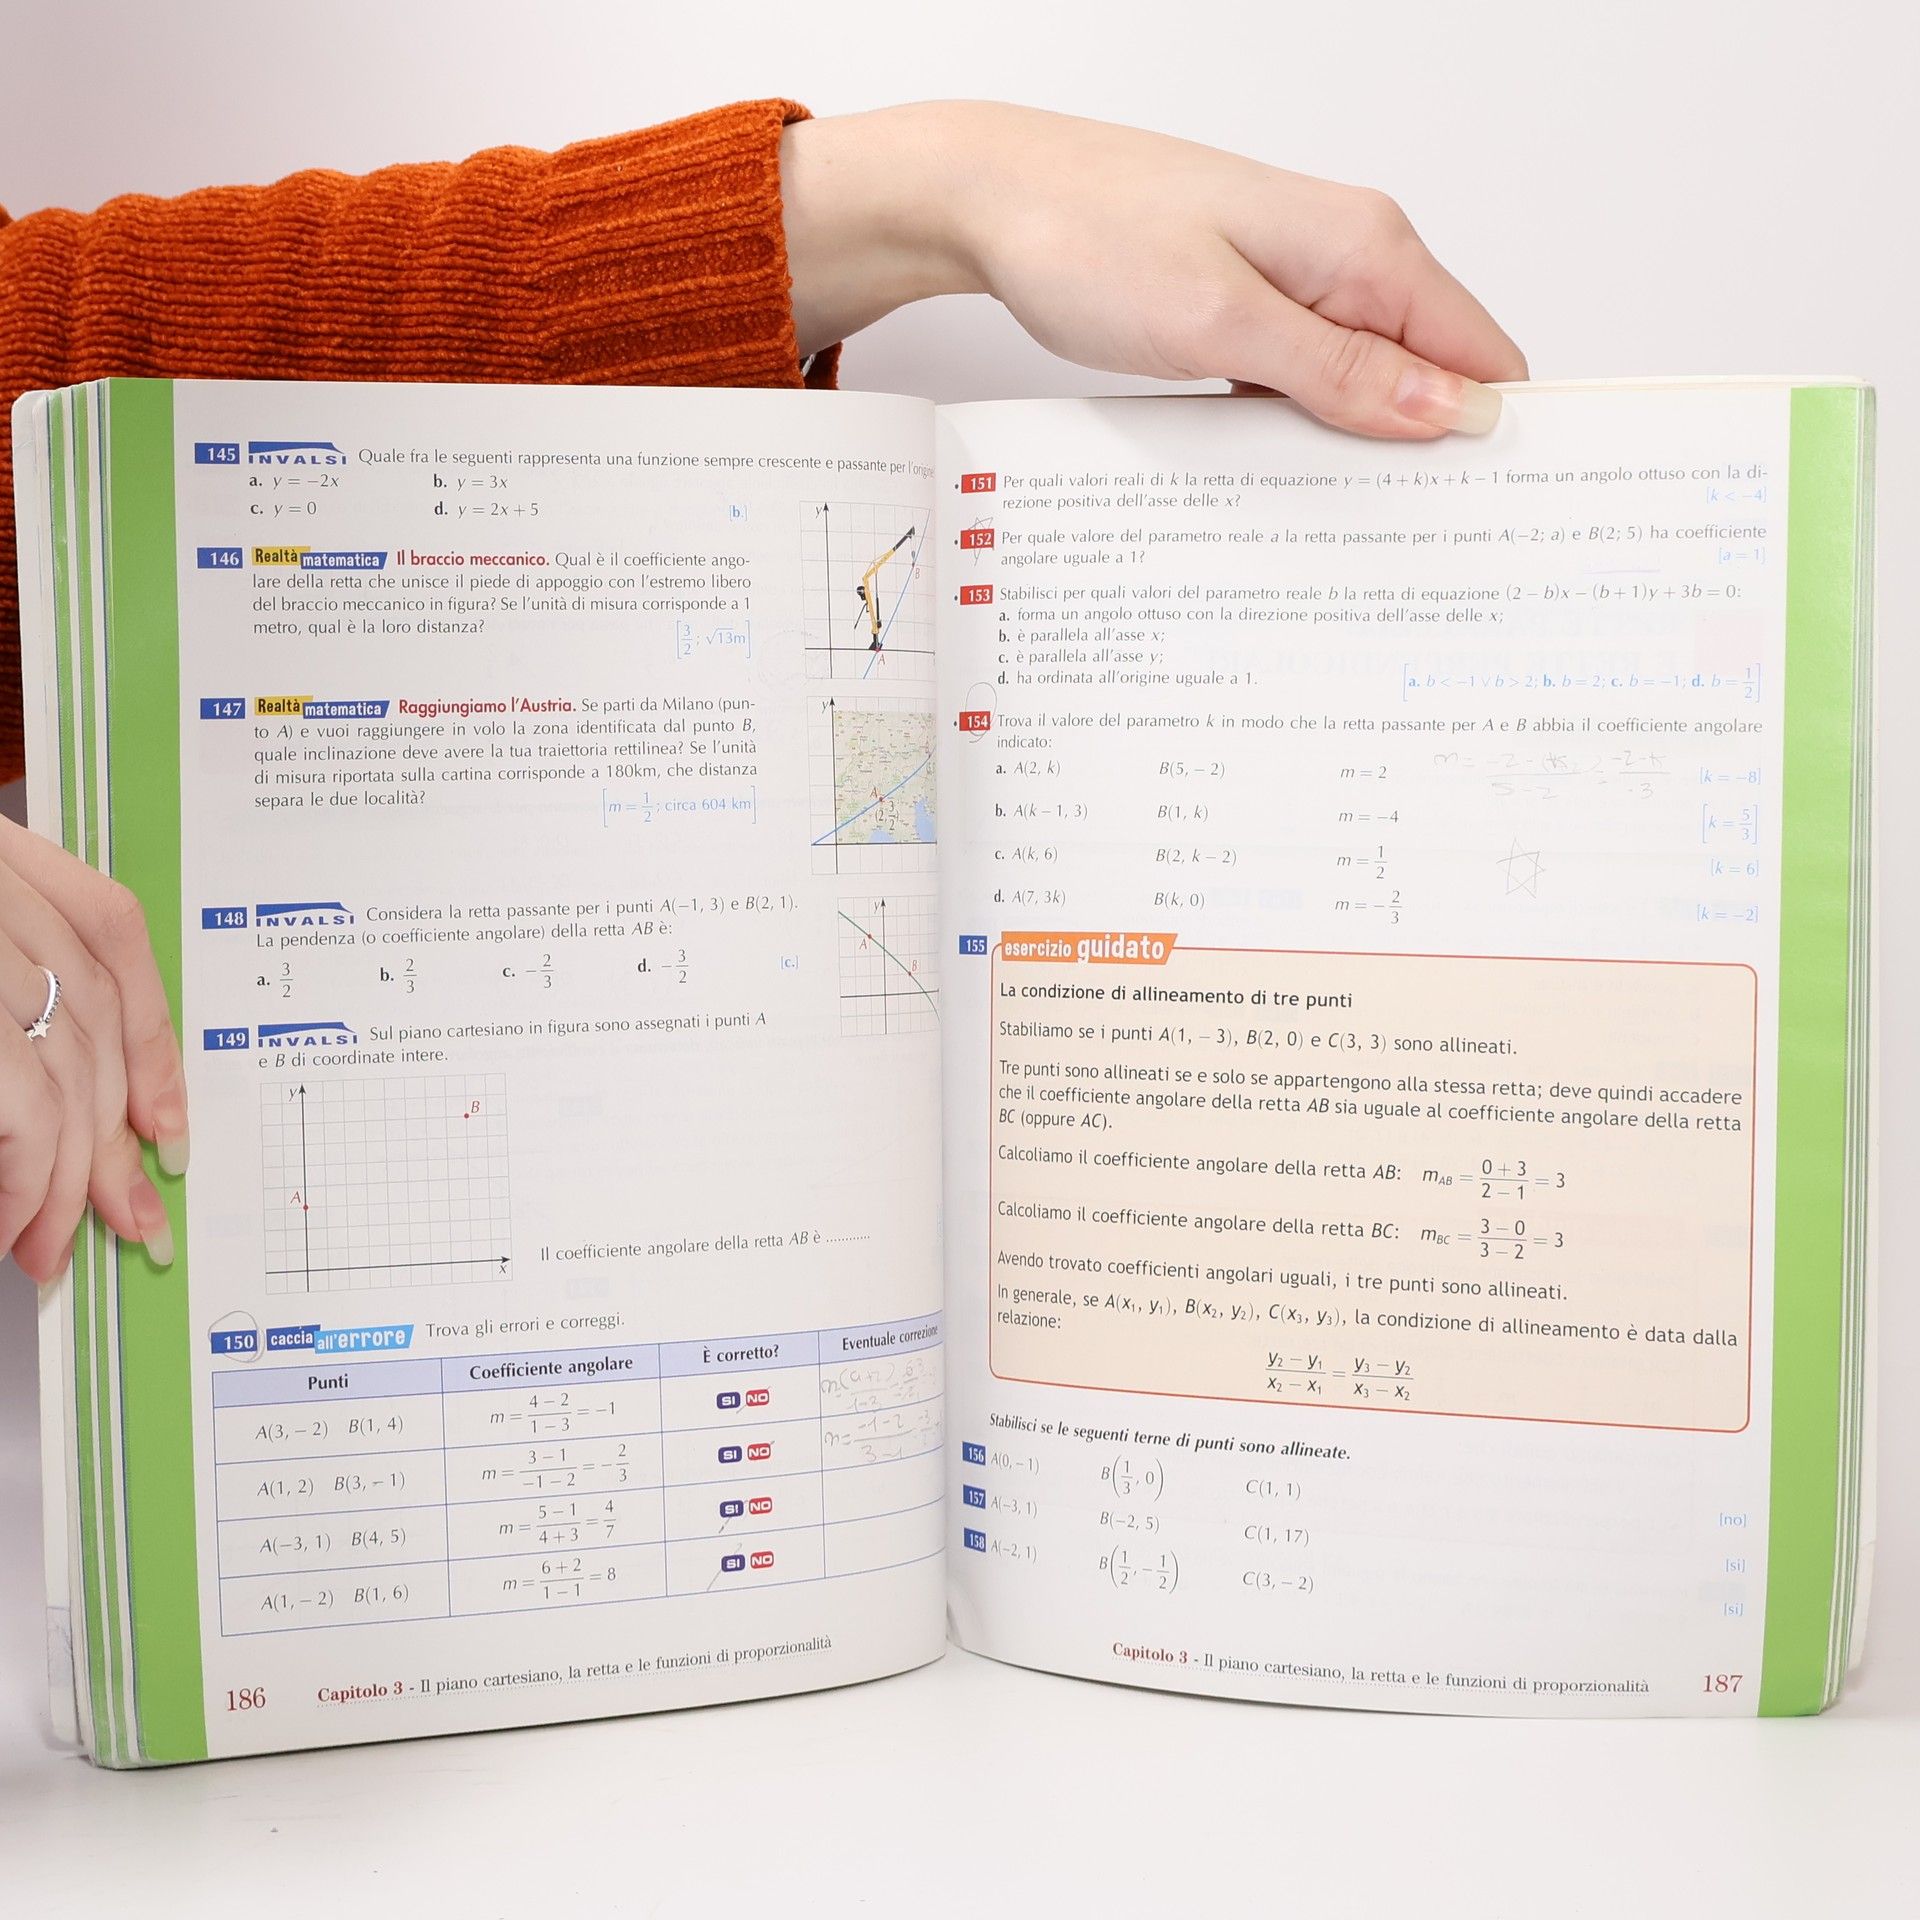 145 INVALSI Quale fra le seguenti rappresenta una funzione sempre crescente e passante per l'origine
a. y = −2x b. y = 3x
c. y = 0 d. y = 2x + 5 [b.]
146 Realtà matematica Il braccio meccanico. Qual è il coefficiente ango-
lare della retta che unisce il piede di appoggio con l'estremo libero
del braccio meccanico in figura? Se l'unità di misura corrisponde a 1
metro, qual è la loro distanza? [3/2; √13m]
y
B
A
147 Realtà matematica Raggiungiamo l'Austria. Se parti da Milano (pun-
to A) e vuoi raggiungere in volo la zona identificata dal punto B,
quale inclinazione deve avere la tua traiettoria rettilinea? Se l'unità
di misura riportata sulla cartina corrisponde a 180km, che distanza
separa le due località? [m = 1/2; circa 604 km]
y
A
(2, 3/2)
148 INVALSI Considera la retta passante per i punti A(−1, 3) e B(2, 1).
La pendenza (o coefficiente angolare) della retta AB è:
a. 3/2 b. 2/3 c. −2/3 d. −3/2 [c.]
y
A
B
149 INVALSI Sul piano cartesiano in figura sono assegnati i punti A
e B di coordinate intere.
y
B
A
x
Il coefficiente angolare della retta AB è ............
150 caccia all'errore Trova gli errori e correggi.
Punti Coefficiente angolare È corretto? Eventuale correzione
A(3, − 2) B(1, 4) m = (4 − 2)/(1 − 3) = −1 SI NO
A(1, 2) B(3, − 1) m = (3 − 1)/(−1 − 2) = −2/3 SI NO
A(−3, 1) B(4, 5) m = (5 − 1)/(4 + 3) = 4/7 SI NO
A(1, − 2) B(1, 6) m = (6 + 2)/(1 − 1) = 8 SI NO
186 Capitolo 3 - Il piano cartesiano, la retta e le funzioni di proporzionalità
151 Per quali valori reali di k la retta di equazione y = (4 + k)x + k − 1 forma un angolo ottuso con la di-
rezione positiva dell'asse delle x? [k < −4]
152 Per quale valore del parametro reale a la retta passante per i punti A(−2; a) e B(2; 5) ha coefficiente
angolare uguale a 1? [a = 1]
153 Stabilisci per quali valori del parametro reale b la retta di equazione (2 − b)x − (b + 1)y + 3b = 0:
a. forma un angolo ottuso con la direzione positiva dell'asse delle x;
b. è parallela all'asse x;
c. è parallela all'asse y;
d. ha ordinata all'origine uguale a 1. [a. b < −1 ∨ b > 2; b. b = 2; c. b = −1; d. b = 1/2]
154 Trova il valore del parametro k in modo che la retta passante per A e B abbia il coefficiente angolare
indicato:
a. A(2, k) B(5, − 2) m = 2 [k = −8]
b. A(k − 1, 3) B(1, k) m = −4 [k = 5/3]
c. A(k, 6) B(2, k − 2) m = 1/2 [k = 6]
d. A(7, 3k) B(k, 0) m = −2/3 [k = −2]
155 esercizio guidato
La condizione di allineamento di tre punti
Stabiliamo se i punti A(1, − 3), B(2, 0) e C(3, 3) sono allineati.
Tre punti sono allineati se e solo se appartengono alla stessa retta; deve quindi accadere
che il coefficiente angolare della retta AB sia uguale al coefficiente angolare della retta
BC (oppure AC).
Calcoliamo il coefficiente angolare della retta AB: mAB = (0 + 3)/(2 − 1) = 3
Calcoliamo il coefficiente angolare della retta BC: mBC = (3 − 0)/(3 − 2) = 3
Avendo trovato coefficienti angolari uguali, i tre punti sono allineati.
In generale, se A(x₁, y₁), B(x₂, y₂), C(x₃, y₃), la condizione di allineamento è data dalla
relazione:
(y₂ − y₁)/(x₂ − x₁) = (y₃ − y₂)/(x₃ − x₂)
Stabilisci se le seguenti terne di punti sono allineate.
156 A(0, − 1) B(1/3, 0) C(1, 1) [no]
157 A(−3, 1) B(−2, 5) C(1, 17) [si]
158 A(−2, 1) B(1/2, −1/2) C(3, − 2) [si]
Capitolo 3 - Il piano cartesiano, la retta e le funzioni di proporzionalità 187